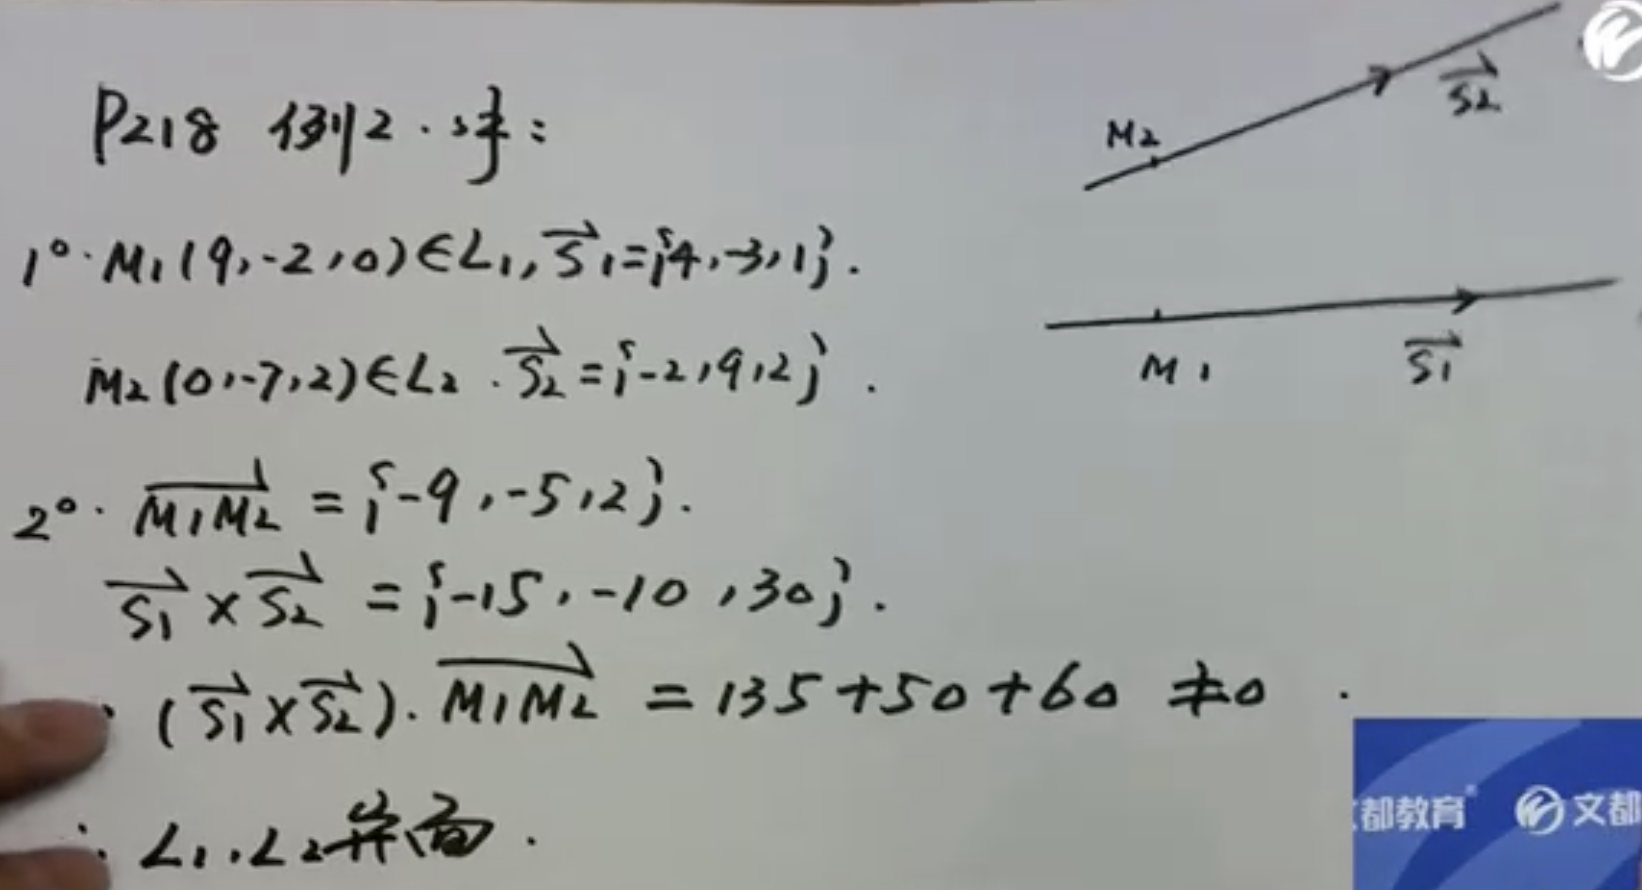 P218 例2.译:
1°. M1(9,-2,0)∈L1, S1={4,-3,1}.
M2(0,-7,2)∈L2. S2={-2,9,2}.
2°. M1M2={-9,-5,2}.
S1×S2={-15,-10,30}.
(S1×S2).M1M2=135+50+60≠0.
∴L1,L2异面.
M2
S2
M1
S1
都教育®
文都